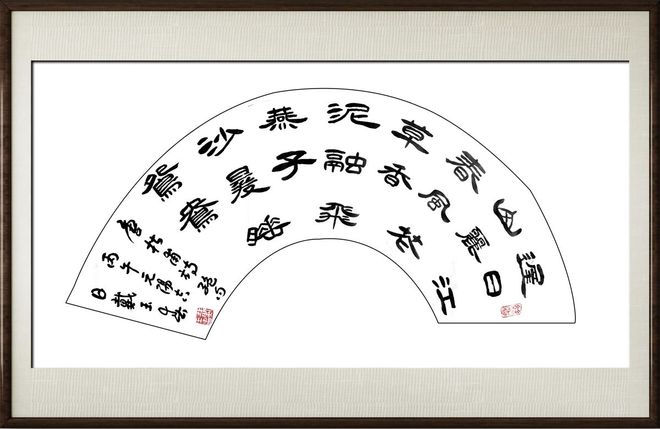 遲日江
山麗
春風花
草香
泥融飛
燕子
沙暖睡
鴛鴦
唐杜甫詩絕句
丙午元陽六
日戴玉